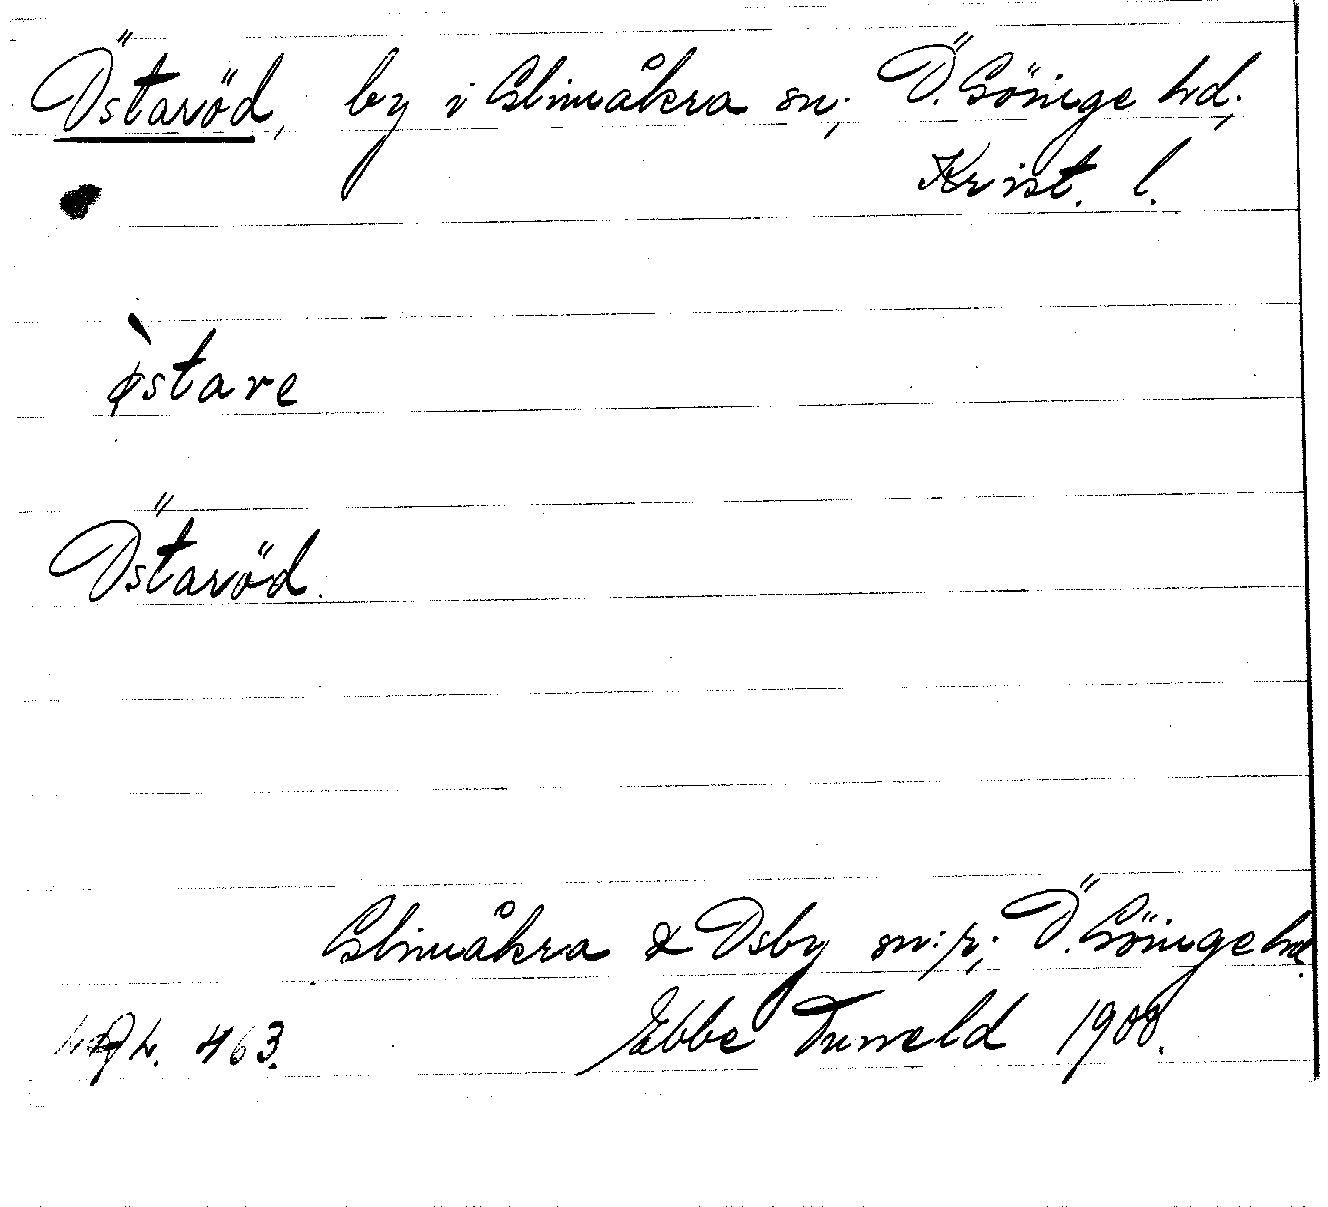 Östaröd, by i Glimåkra sn; Ö. Göinge hd;
Krist. l.
ø̀stare
Östaröd.
Glimåkra & Osby sn:r; Ö. Göinge hd.
463. Ebbe Tuneld 1900.